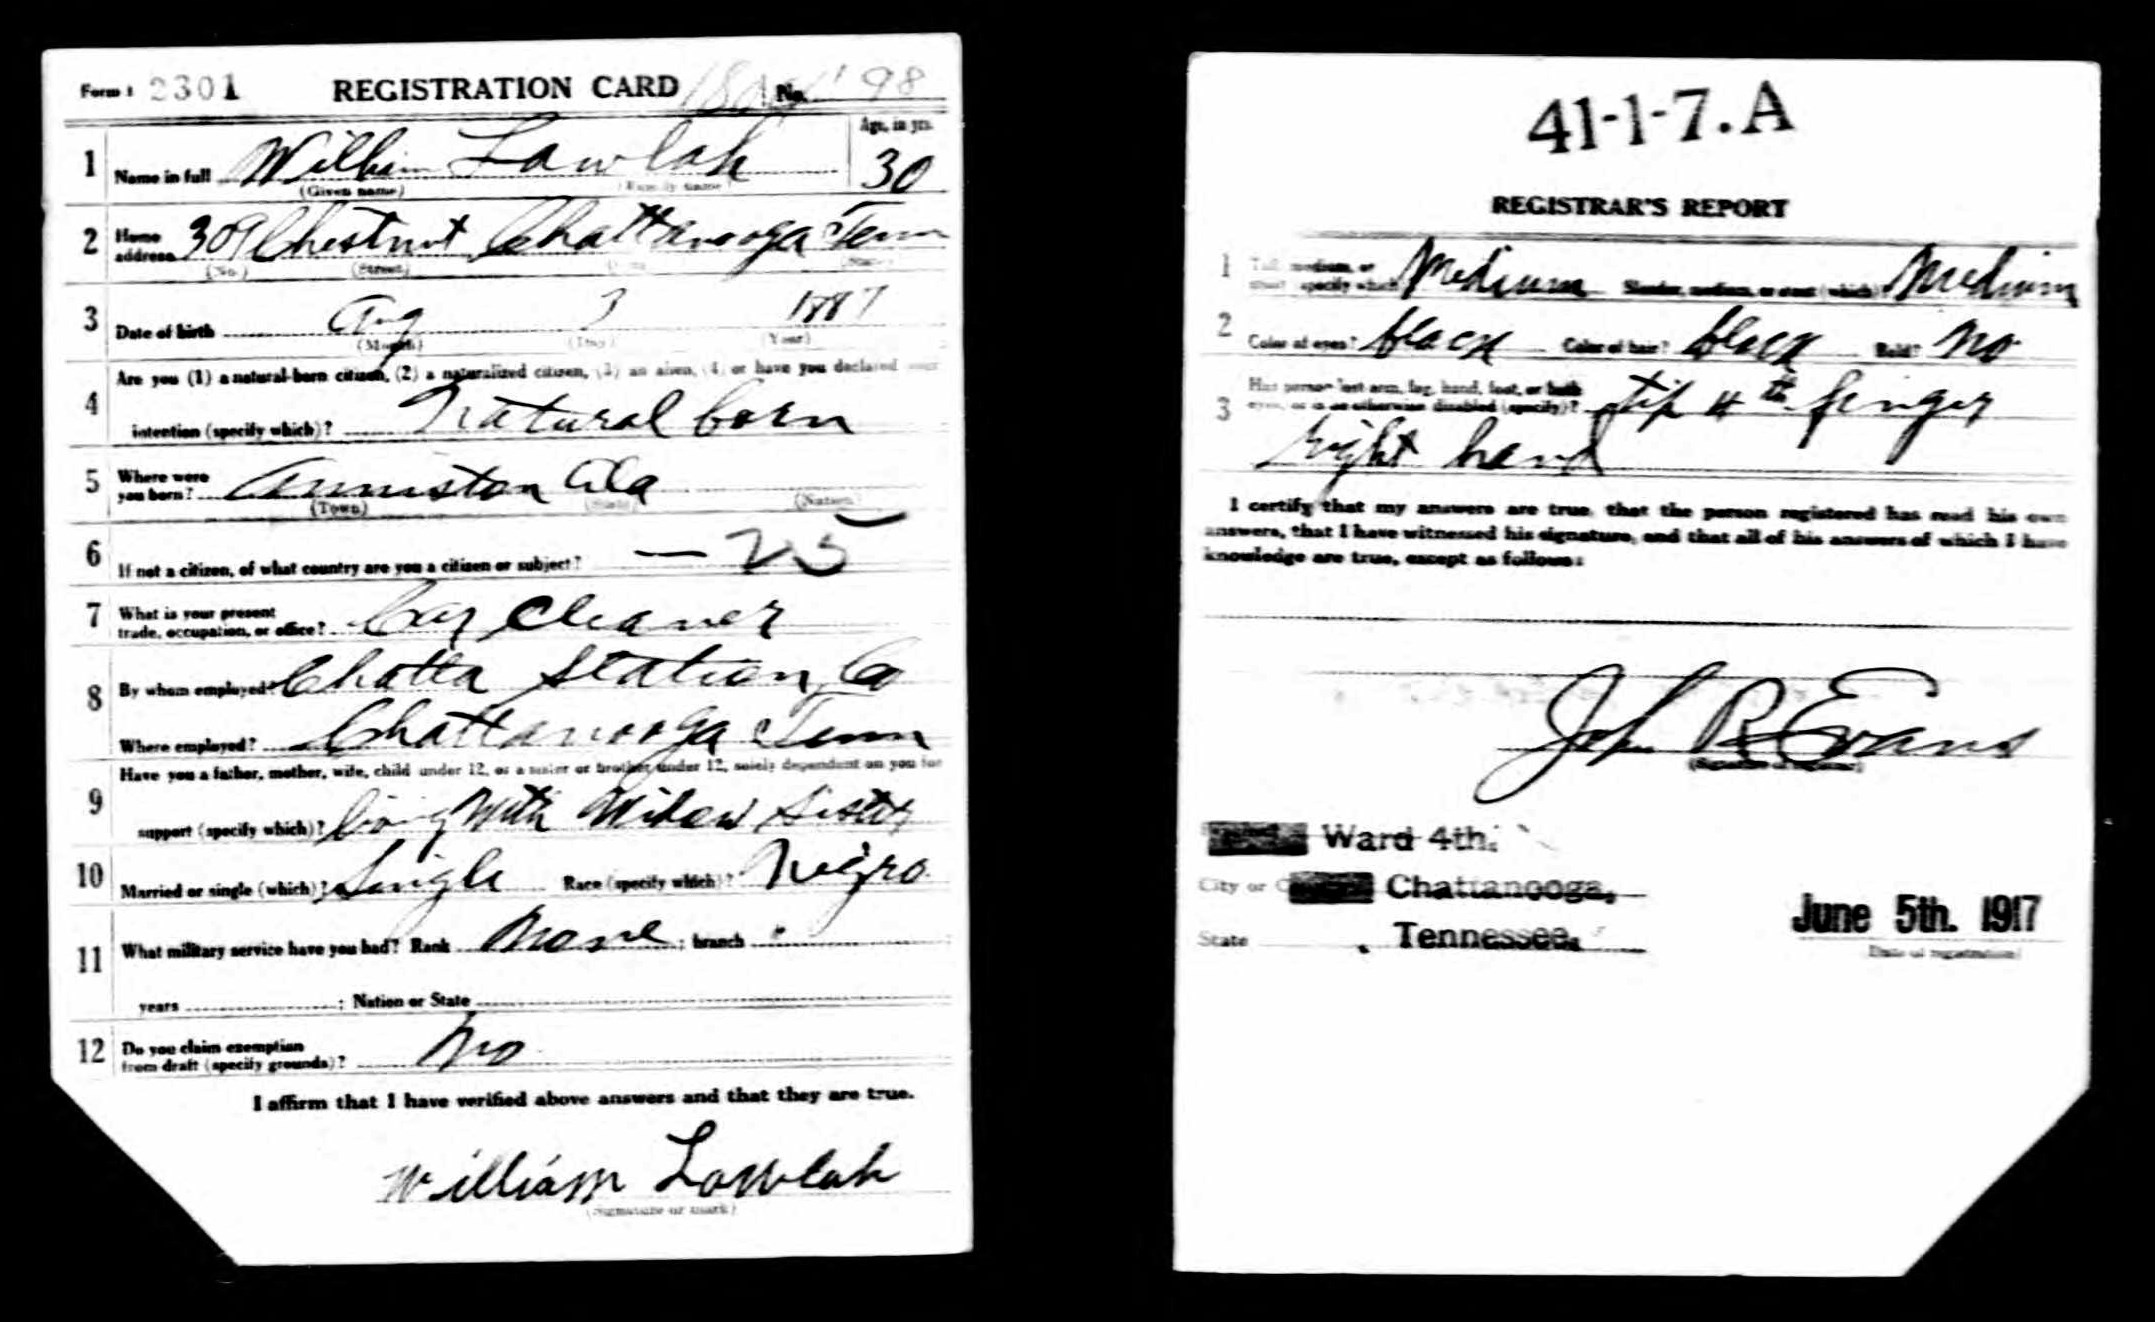 Form 1 2301 REGISTRATION CARD No. 98
1 Name in full William Lawlah Age, in yrs. 30
(Given name) (Family name)
2 Home address 309 Chestnut Chattanooga Tenn
(No.) (Street) (State)
3 Date of birth Aug 3 1887
(Month) (Day) (Year)
4 Are you (1) a natural-born citizen, (2) a naturalized citizen, (3) an alien, (4) or have you declared your
intention (specify which)? Natural born
5 Where were you born? Anniston Ala
(Town) (State) (Nation)
6 If not a citizen, of what country are you a citizen or subject? —
7 What is your present trade, occupation, or office? Car Cleaner
8 By whom employed? Chatta Station Co
Where employed? Chattanooga Tenn
9 Have you a father, mother, wife, child under 12, or a sister or brother under 12, solely dependent on you for
support (specify which)? living with Widow Sister
10 Married or single (which)? Single Race (specify which)? Negro
11 What military service have you had? Rank None ; branch "
years ; Nation or State
12 Do you claim exemption from draft (specify grounds)? No
I affirm that I have verified above answers and that they are true.
William Lawlah
(Signature or mark)
41-1-7.A
REGISTRAR'S REPORT
1 Tall, medium, or short (specify which)? Medium Slender, medium, or stout (which)? Medium
2 Color of eyes? black Color of hair? black Bald? No
3 Has person lost arm, leg, hand, foot, or both eyes, or is he otherwise disabled (specify)? tip 4th finger
right hand
I certify that my answers are true, that the person registered has read his own
answers, that I have witnessed his signature, and that all of his answers of which I have
knowledge are true, except as follows:
John R Evans
(Signature of registrar)
Ward 4th.
City or Chattanooga,
State Tennessee.
June 5th. 1917
(Date of registration)